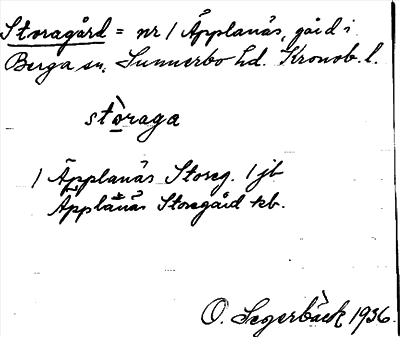 Storagård = nr 1 Äpplanäs, gård i
Berga sn. Sunnerbo hd. Kronob. l.
stò̲raga
1 Äpplanäs Storeg. 1 jb
Äpplanäs Storegård kb.
O. Segerbäck 1936.